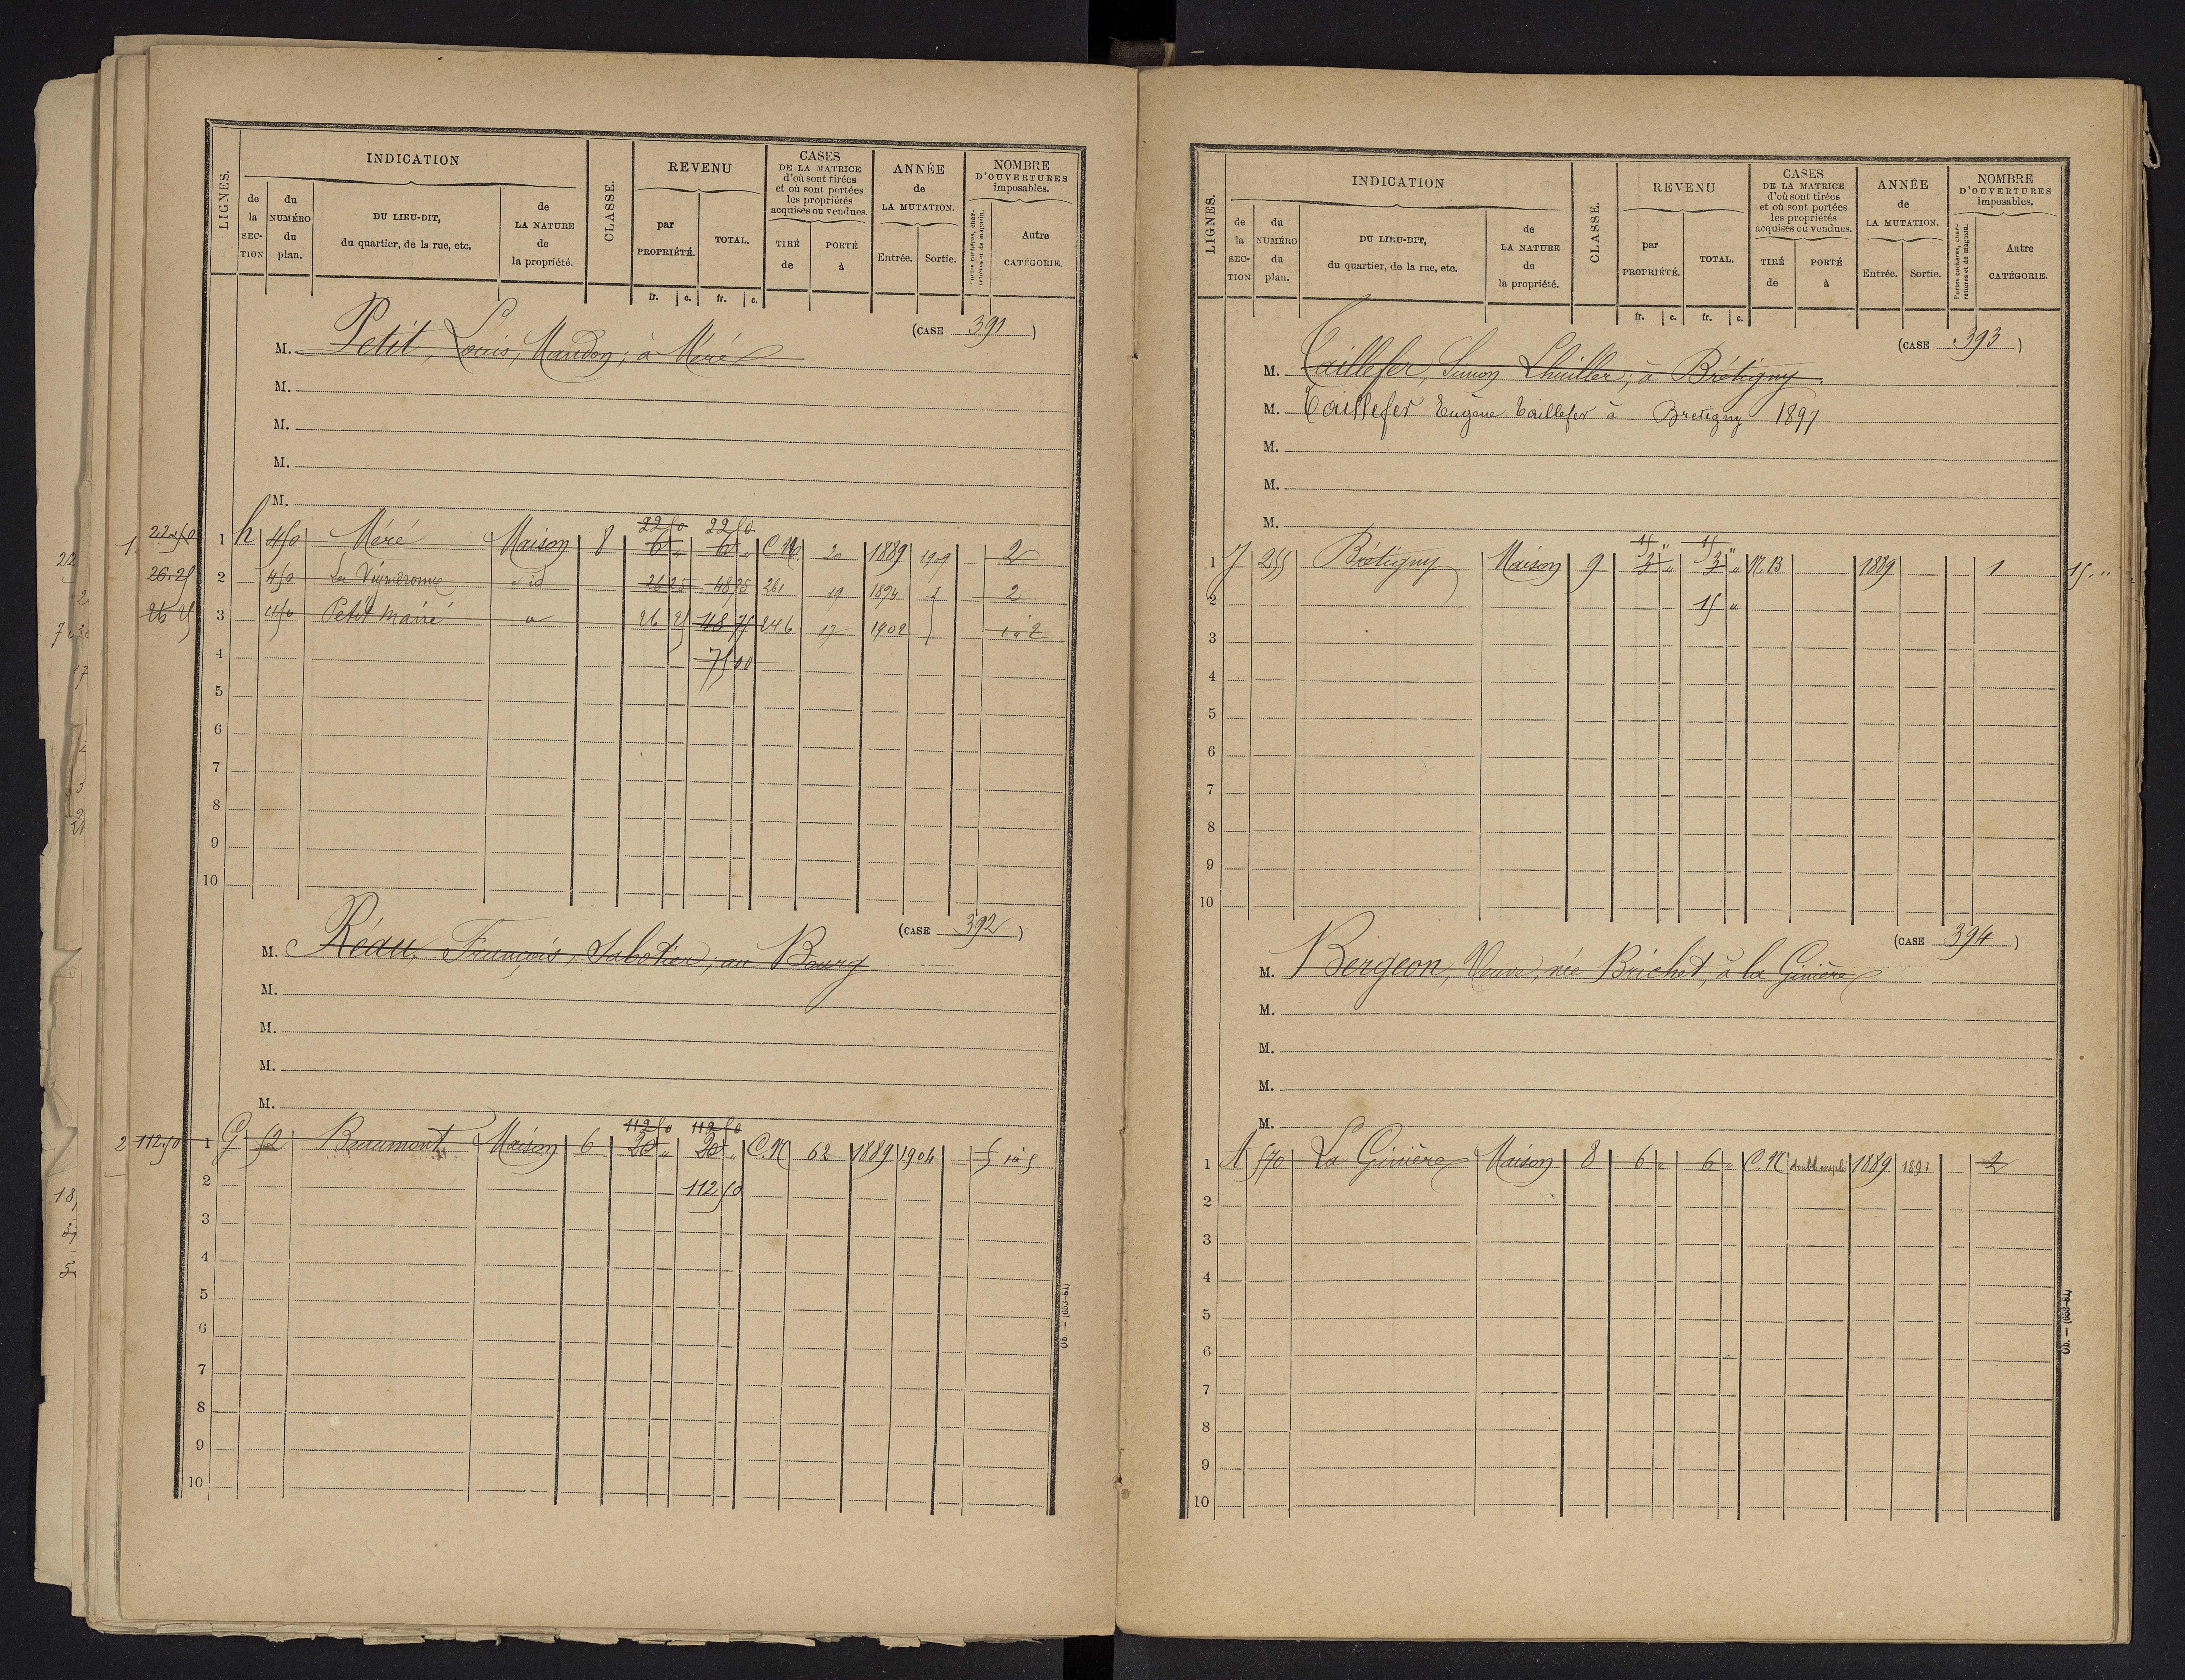 LIGNES.
INDICATION
de la SECTION
du NUMÉRO du plan.
DU LIEU-DIT, du quartier, de la rue, etc.
de LA NATURE de la propriété.
CLASSE.
REVENU
par PROPRIÉTÉ.
TOTAL.
fr. c. fr. c.
CASES DE LA MATRICE d'où sont tirées et où sont portées les propriétés acquises ou vendues.
TIRÉ de
PORTÉ à
ANNÉE de LA MUTATION.
Entrée. Sortie.
NOMBRE D'OUVERTURES imposables.
Portes cochères, charretières et de magasin.
Autre CATÉGORIE.
(CASE 391)
M. Petit, Louis, à Méré
M.
M.
M.
M.
22 50 22 50
1 22.50 1 h 450 Méré Maison 8 6 " 6 " C.M. 20 1889 1909 2
26.25 2 450 id 26 25 48 75 261 19 1894 2
26 25 3 450 Petit Mairé 26 25 48 75 246 17 1902 2
4 75 00
5
6
7
8
9
10
(CASE 392)
M. Réau, François, Sabotier, au Bourg
M.
M.
M.
M.
112 50 112 50
2 112.50 1 G 52 Beaumont Maison 6 20 " 20 " C.M 62 1889 1904 5
2 112 50
3
4
5
6
7
8
9
10
Ob. — (653-81)
LIGNES.
INDICATION
de la SECTION
du NUMÉRO du plan.
DU LIEU-DIT, du quartier, de la rue, etc.
de LA NATURE de la propriété.
CLASSE.
REVENU
par PROPRIÉTÉ.
TOTAL.
fr. c. fr. c.
CASES DE LA MATRICE d'où sont tirées et où sont portées les propriétés acquises ou vendues.
TIRÉ de
PORTÉ à
ANNÉE de LA MUTATION.
Entrée. Sortie.
NOMBRE D'OUVERTURES imposables.
Portes cochères, charretières et de magasin.
Autre CATÉGORIE.
(CASE 393)
M. Taillefer, Simon Lhuiller, à Brétigny.
M. Taillefer Eugène Taillefer à Bretigny 1897
M.
M.
M.
15 " 15 "
1 J 255 Brétigny Maison 9 3 " 3 " N.B 1889 1 15 "
2 15 "
3
4
5
6
7
8
9
10
(CASE 394)
M. Bergeon, Veuve, née Brichet, à la Ginière
M.
M.
M.
M.
1 A 570 La Ginière Maison 8 6 " 6 " C.M double emploi 1889 1891 2
2
3
4
5
6
7
8
9
10
Ob. — (653-81)